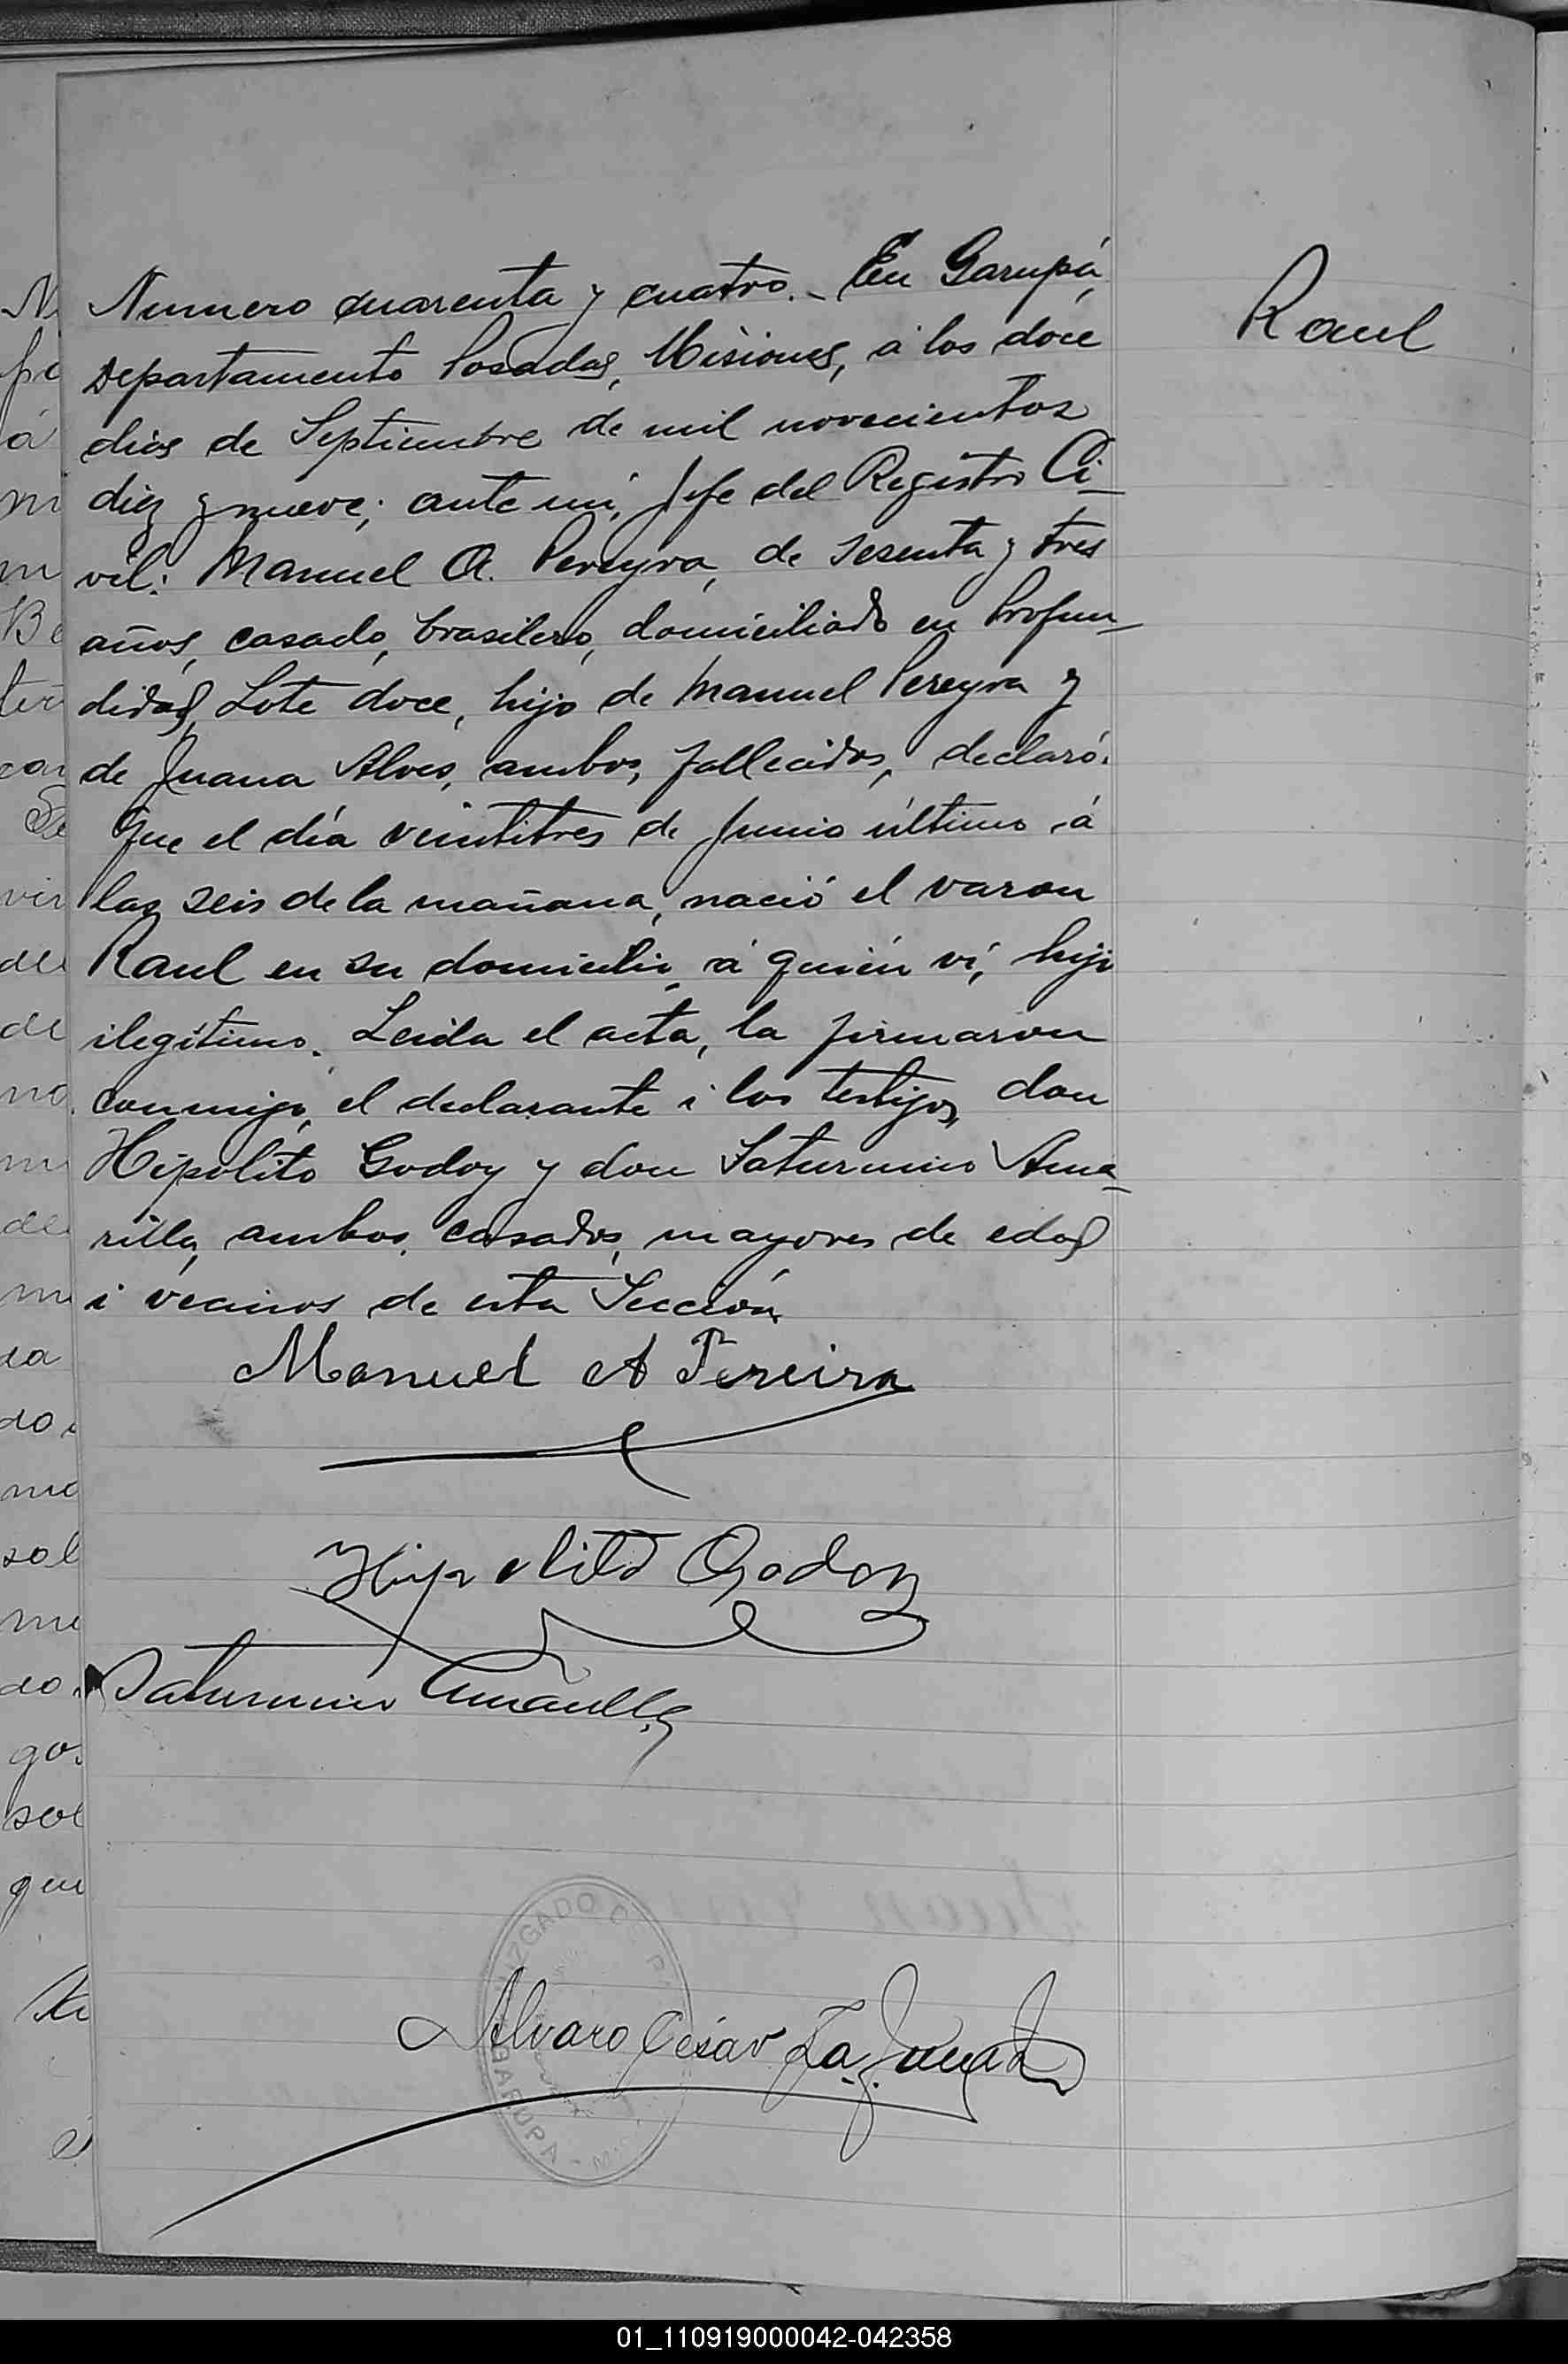 Numero cuarenta y cuatro.- En Garupá,
Departamento Posadas, Misiones, á los doce
dias de Septiembre de mil novecientos
diez y nueve; ante mi, Jefe del Registro Ci-
vil: Manuel A. Pereyra, de sesenta y tres
años, casado, brasilero, domiciliado en Profun-
didad, Lote doce, hijo de Manuel Pereyra y
de Juana Alves, ambos, fallecidos, declaró:
Que el día veintitres de Junio último á
las seis de la mañana, nació el varon
Raul en su domicilio, á quién ví, hijo
ilegítimo. Leida el acta, la firmaron
conmigo, el declarante i los testigos, don
Hipolito Godoy y don Saturnino Ama-
rilla, ambos, casados, mayores de edad
i vecinos de esta Sección.
Raul
Manuel A Pereira
Hipolito Godoy
Saturnino Amarilla
JUZGADO DE P
GARUPA - MIS
Alvaro César
01_110919000042-042358